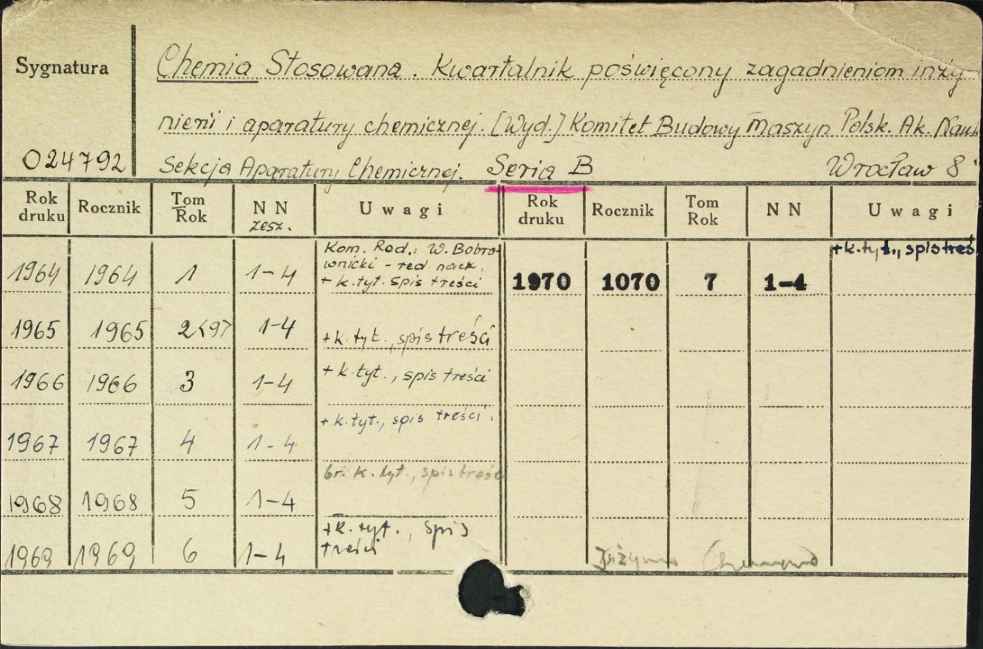 Sygnatura
Chemia Stosowana. Kwartalnik poświęcony zagadnieniom inży-
nierii i aparatury chemicznej. [Wyd.] Komitet Budowy Maszyn Polsk. Ak. Nauk
024792 Sekcja Aparatury Chemicznej. Seria B Wrocław 8°
Rok druku Rocznik Tom Rok NN zesz. Uwagi Rok druku Rocznik Tom Rok NN Uwagi
1964 1964 1 1-4 Kom. Red.: W. Bobro-
wnicki - red nacz.
+ k.tyt. spis treści
1970 1070 7 1-4 +k.tyt., spis treś.
1965 1965 2 1-4 +k.tyt., spis treści
1966 1966 3 1-4 +k.tyt., spis treści
1967 1967 4 1-4 +k.tyt., spis treści.
1968 1968 5 1-4 br. k.tyt., spis treści
1969 1969 6 1-4 +k.tyt., spis
treści